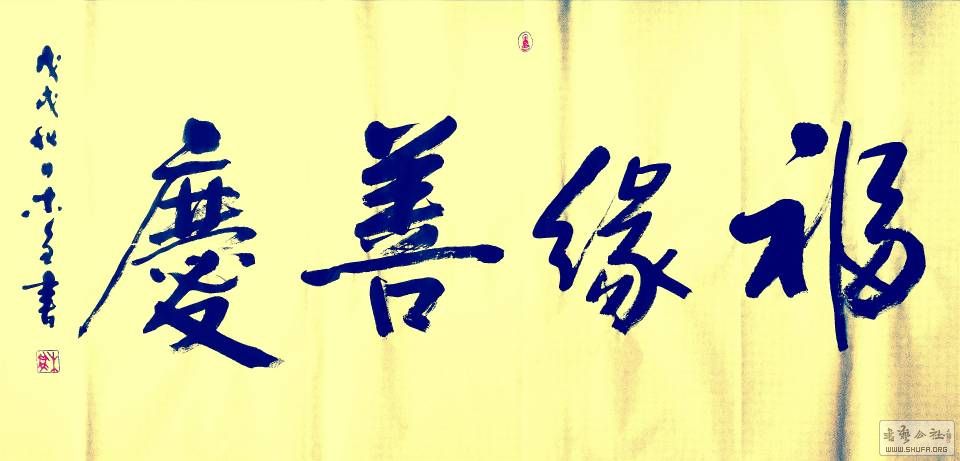 福緣善慶
戊戌秋日
書
書藝公社
WWW.SHUFA.ORG